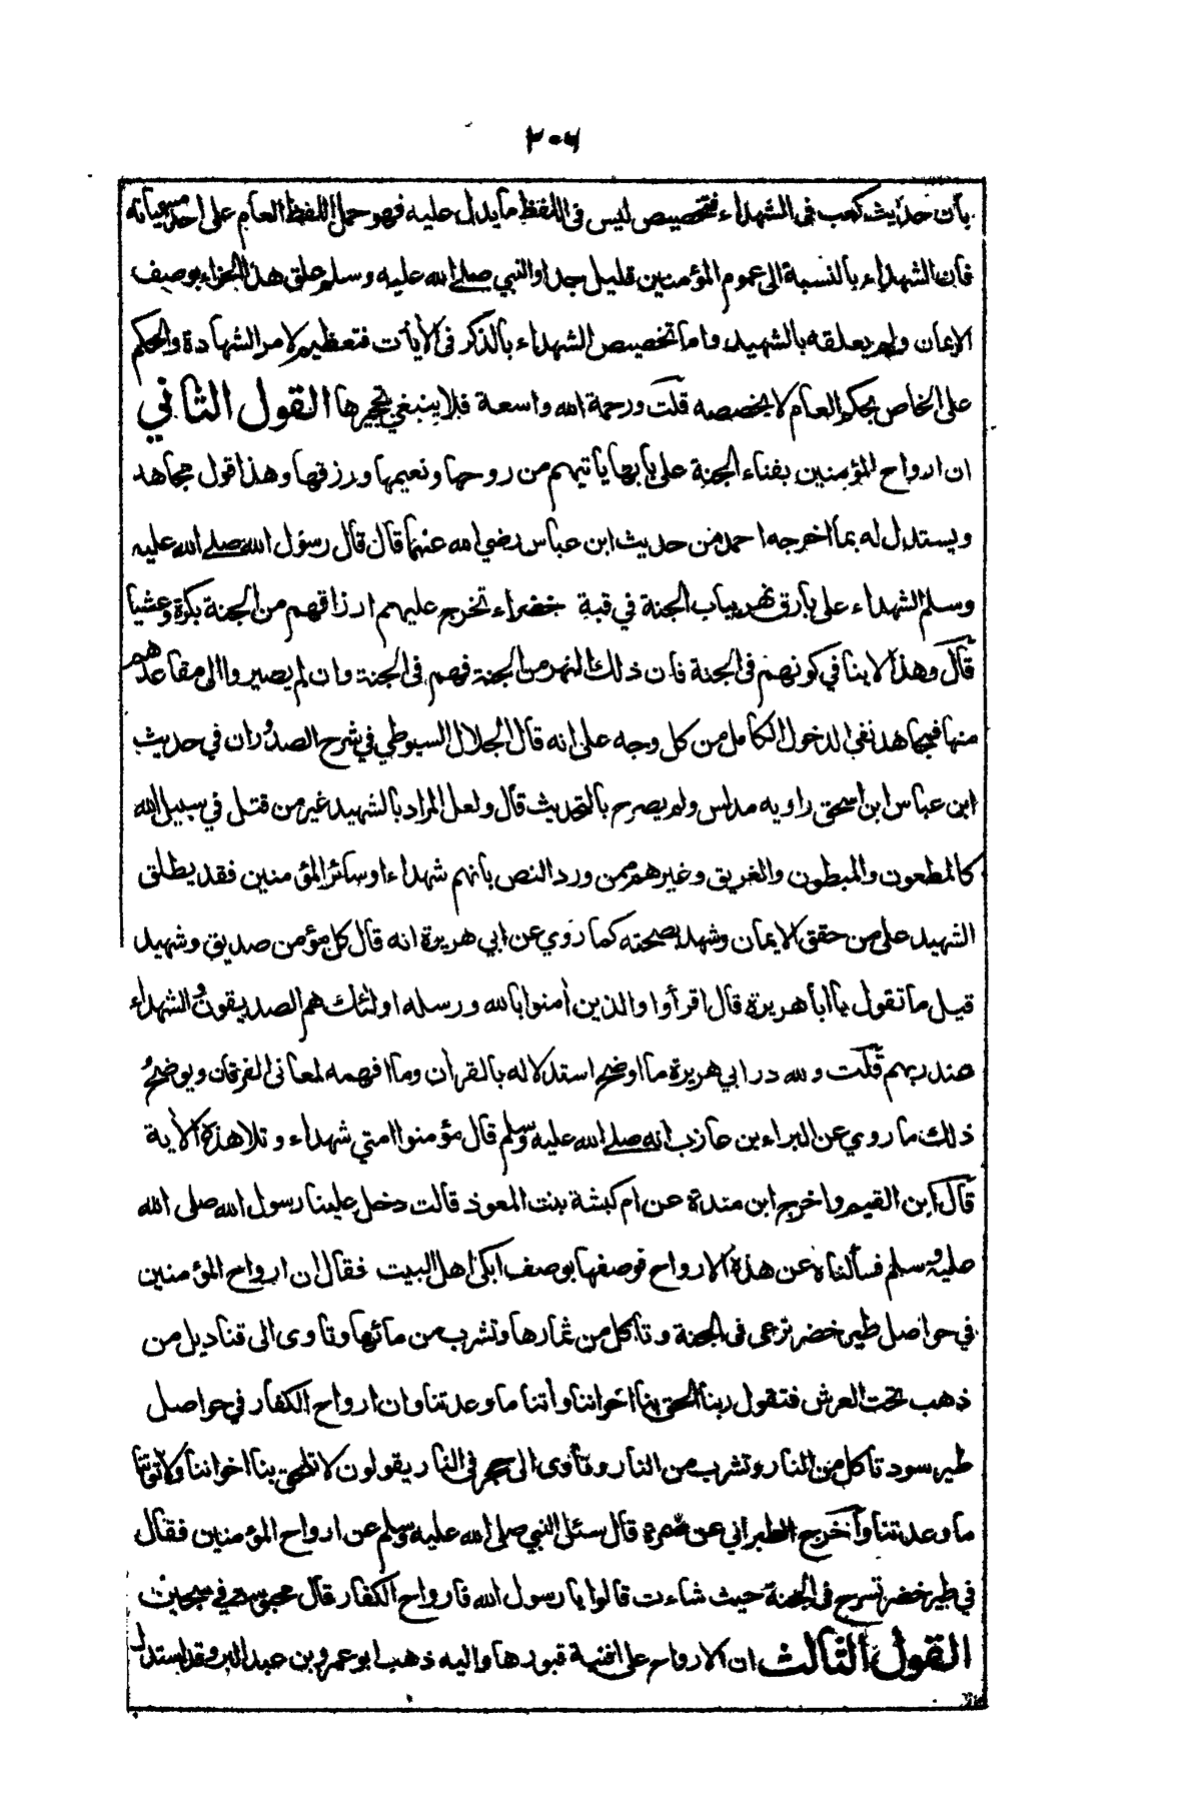 ٢٠٦
بأن حديث كعب في الشهداء فتخصيص ليس في اللفظ ما يدل عليه فهو حمل اللفظ العام على احد مسمياته
فان الشهداء بالنسبة الى عموم المؤمنين قليل جدا والنبي صلے الله عليه وسلم علق هذا الجزاء بوصف
الايمان ولم يعلقه بالشهيد واما تخصيص الشهداء بالذكر في الأيات فتعظيم لامر الشهادة والحكم
على الخاص بحكم العام لا يخصصه قلت ورحمة الله واسعة فلا ينبغي تحجيرها القول الثاني
ان ارواح المؤمنين بفناء الجنة على بابها يأتيهم من روحها ونعيمها ورزقها وهذا قول مجاهد
ويستدل له بما اخرجه احمد من حديث ابن عباس رضي الله عنهما قال قال رسول الله صلے الله عليه
وسلم الشهداء على بارق نهر بباب الجنة في قبة خضراء تخرج عليهم ارزاقهم من الجنة بكرة وعشيا
قال وهذا لا ينافي كونهم في الجنة فان ذلك النهر من الجنة فهم في الجنة وان لم يصيروا الى مقاعدهم
منها فمجاهد نفى الدخول الكامل من كل وجه على انه قال الجلال السيوطي في شرح الصدور ان في حديث
ابن عباس ابن اسحق راويه مدلس ولم يصرح بالتحديث قال ولعل المراد بالشهيد غير من قتل في سبيل الله
كالمطعون والمبطون والغريق وغيرهم ممن ورد النص بانهم شهداء او سائر المؤمنين فقد يطلق
الشهيد على من حقق الايمان وشهد بصحته كما روي عن ابي هريرة انه قال كل مؤمن صديق وشهيد
قيل ما تقول يا أبا هريرة قال اقرأوا والذين أمنوا بالله ورسله اولئك هم الصديقون والشهداء
عند ربهم قلت ولله در ابي هريرة ما اوضح استدلاله بالقرأن وما افهمه لمعاني الفرقان ويوضح
ذلك ما روي عن البراء بن عازب انه صلے الله عليه وسلم قال مؤمنوا امتي شهداء وتلا هذه الأية
قال ابن القيم واخرج ابن مندة عن ام كبشة بنت المعوذ قالت دخل علينا رسول الله صلى الله
عليه وسلم فسألناه عن هذه الارواح فوصفها بوصف ابكى اهل البيت فقال ان ارواح المؤمنين
في حواصل طير خضر ترعى في الجنة وتأكل من ثمارها وتشرب من مائها وتأوى الى قناديل من
ذهب تحت العرش فتقول ربنا الحق بنا اخواننا وأتنا ما وعدتنا وان ارواح الكفار في حواصل
طير سود تأكل من النار وتشرب من النار وتأوى الى جحر في النار يقولون لا تلحق بنا اخواننا ولا تؤتنا
ما وعدتنا وأخرج الطبراني عن ضمرة قال سئل النبي صلى الله عليه وسلم عن ارواح المؤمنين فقال
في طير خضر تسرح في الجنة حيث شاءت قالوا يا رسول الله فارواح الكفار قال محبوسة في سجين
القول الثالث ان الارواح على افنية قبورها واليه ذهب ابو عمرو بن عبد البر وقد استدل